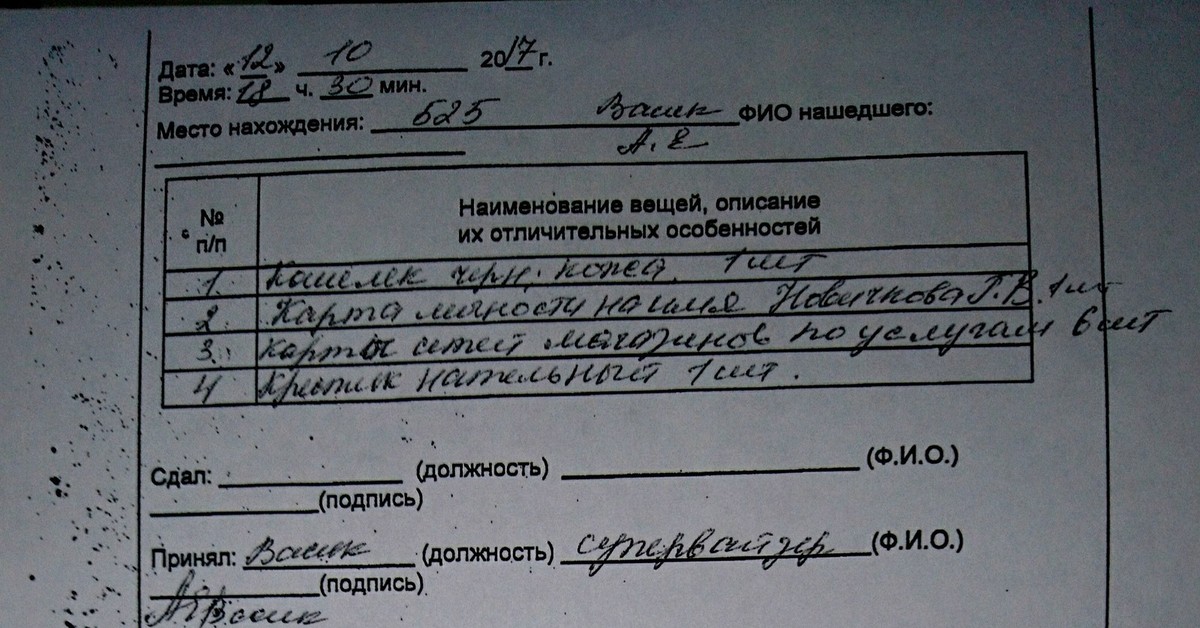 Дата: «12» 10 2017 г.
Время: 18 ч. 30 мин.
Место нахождения: 525 Васик ФИО нашедшего:
А. Е
№ п/п
Наименование вещей, описание
их отличительных особенностей
1 Кошелек черн. кожа. 1 шт
2 Карта личности на имя Новичкова Г.В. 1 шт
3 Карты сетей магазинов по услугам 6 шт
4 Крестик нательный 1 шт.
Сдал: (должность) (Ф.И.О.)
(подпись)
Принял: Васик (должность) супервайзер (Ф.И.О.)
(подпись)
Васик